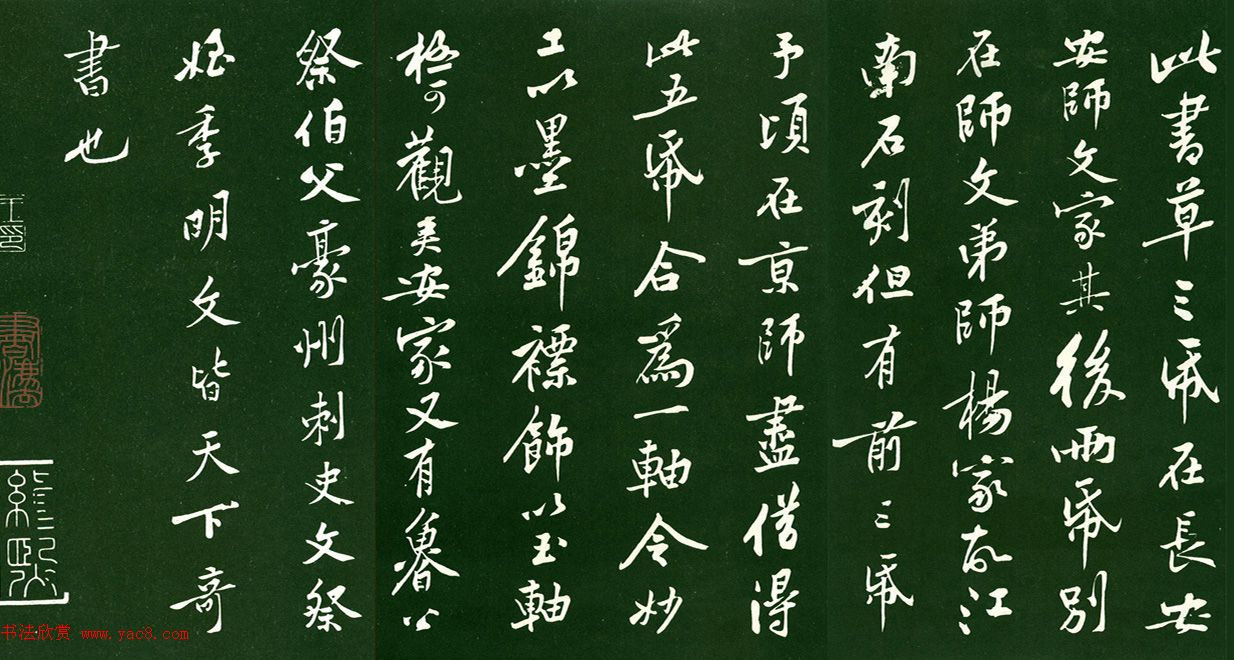 此書草三帋在長安
安師文家其後兩帋別
在師文弟師楊家故江
南石刻但有前三帋
予頃在京師盡借得
此五帋合爲一軸令妙
工以墨錦褾飾以玉軸
極可觀矣安家又有魯公
祭伯父豪州刺史文祭
姪季明文皆天下奇
書也
书法欣赏 www.yac8.com